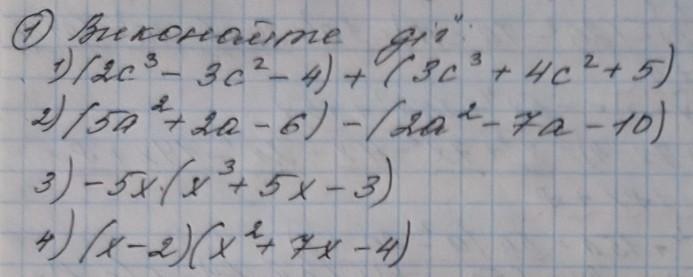 ① Виконайте дії:
1) (2c³ - 3c² - 4) + (3c³ + 4c² + 5)
2) (5a² + 2a - 6) - (2a² - 7a - 10)
3) -5x(x³ + 5x - 3)
4) (x - 2)(x² + 7x - 4)